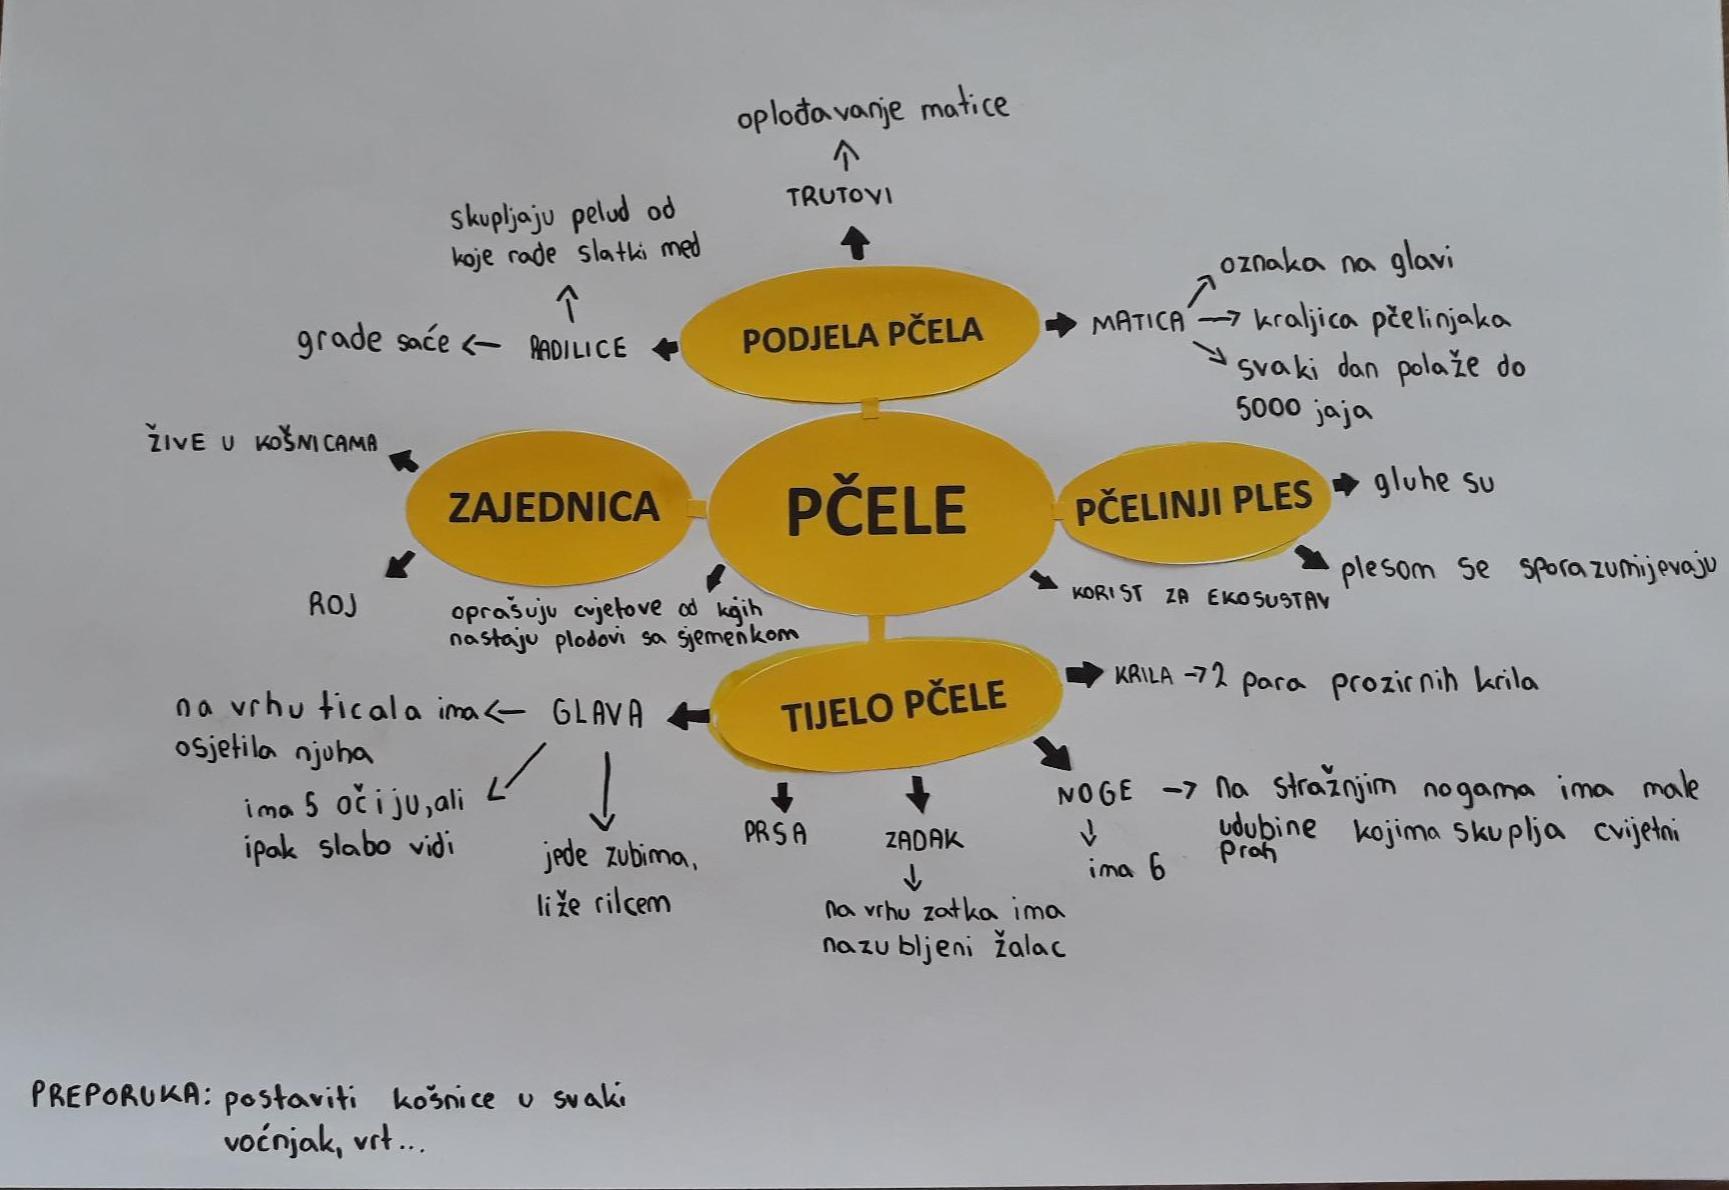 oplođavanje matice
TRUTOVI
skupljaju pelud od
koje rade slatki med
grade saće
RADILICE
PODJELA PČELA
MATICA
oznaka na glavi
kraljica pčelinjaka
svaki dan polaže do
5000 jaja
ŽIVE U KOŠNICAMA
ZAJEDNICA
ROJ
PČELE
PČELINJI PLES
gluhe su
plesom se sporazumijevaju
oprašuju cvjetove od kojih
nastaju plodovi sa sjemenkom
KORIST ZA EKOSUSTAV
TIJELO PČELE
KRILA
2 para prozirnih krila
GLAVA
na vrhu ticala ima
osjetila njuha
ima 5 očiju, ali
ipak slabo vidi
jede zubima,
liže rilcem
PRSA
ZADAK
na vrhu zatka ima
nazubljeni žalac
NOGE
ima 6
na stražnjim nogama ima male
udubine kojima skuplja cvijetni
prah
PREPORUKA: postaviti košnice u svaki
voćnjak, vrt...